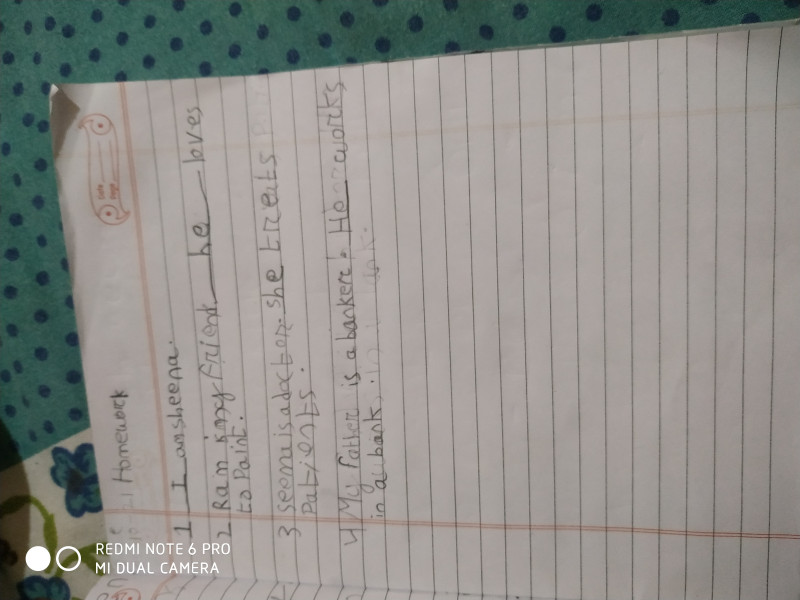 Homework
1 I amsheena.
2 Ram is my friend he loves
to Paint.
3 seema is a doctor. she treats
Patients.
4 My Father is a banker. He works
in a bank.
REDMI NOTE 6 PRO
MI DUAL CAMERA